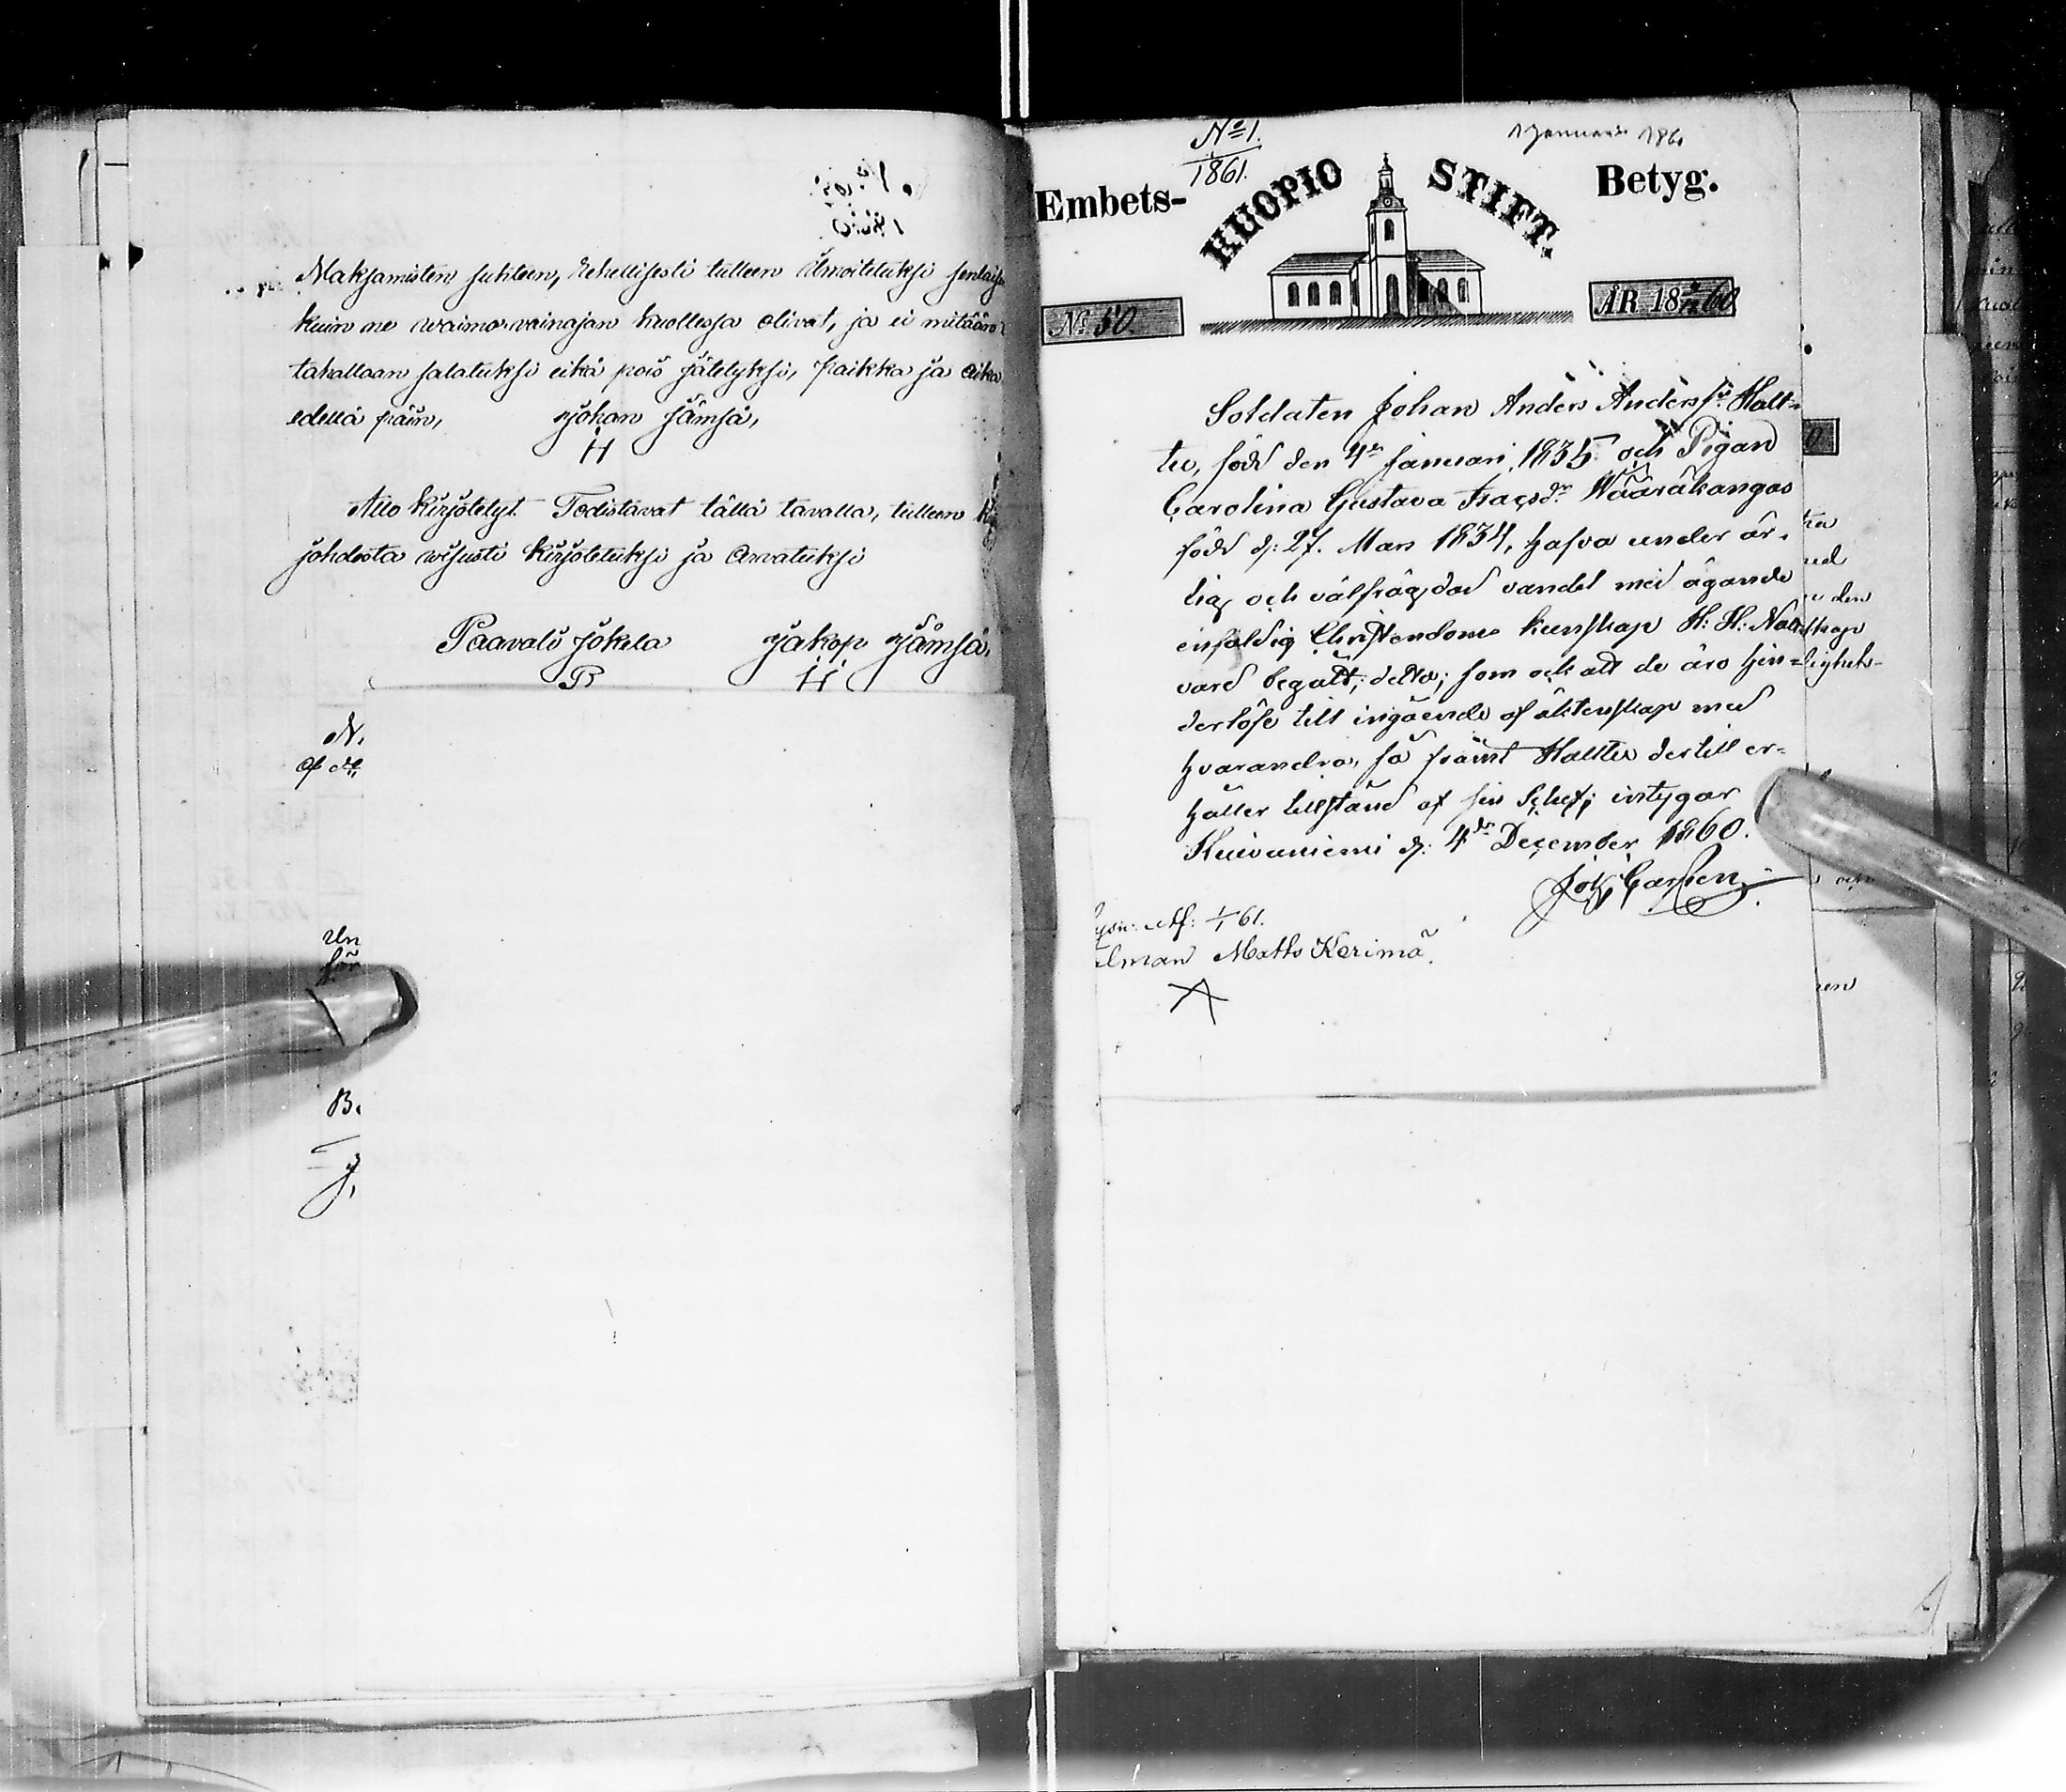 Maksamisten suhteen, rehellisesti tulleen ilmoiteluksi senlaise
kuin ne waimo vainajan kuollessa olivat, ja ei mitään
tahallaan salatuksi eikä pois jätetyksi, paikka ja aika
edellä päin,
Johan Jämsä,
Allo kirjotelyt Todistavat tällä tavalla, tulleen
johdosta wisusti kirjotetuksi ja Arvatuksi
Paavali Jokela Jakop Jämsä.
N.
Un
för
B.
J.
No 1.
1861.
1 Januari 186
Embets- KUOPIO STIFT. Betyg.
No 50. ÅR 18 60
Soldaten Johan Anders Anders sn Halt-
tu, född den 4de Januari 1835 och Pigan
Carolina Gustava Isacsdr Wääräkangas
född d: 27. Mars 1834, hafva under är-
lig och välfrägdad vandel med ägande
enfaldig Christendoms kunskap H. H. Natt-
vard begått; detta; som och att de äro hin-
derlöse till ingående af äktenskap med
hvarandra, så framt Halttu dertill er-
håller tillstånd af sin Schef; intygar
Kuivaniemi d: 4de December 1860.
Joh. Carlsen
Af: 1/1 61.
Matts Kerimä.
ned
den
skap
lighets-
och